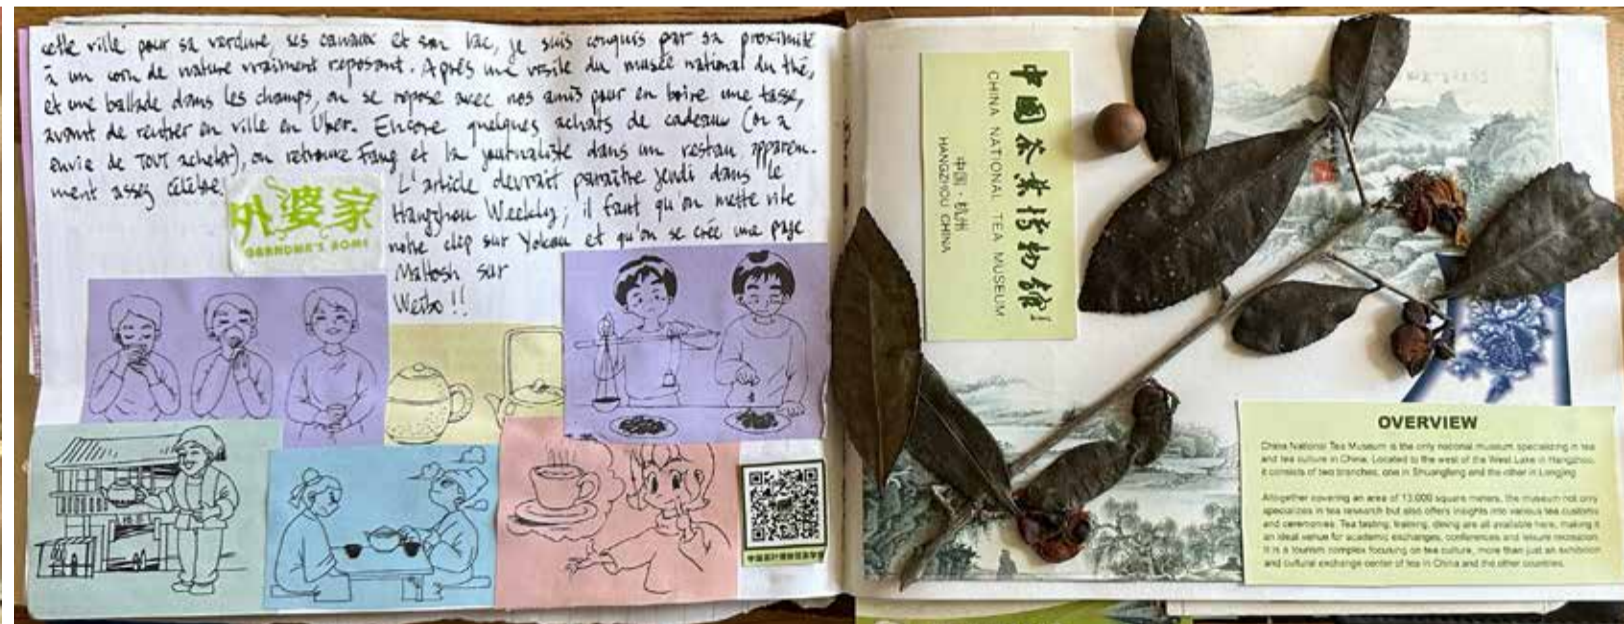 cette ville pour sa verdure, ses canaux et son lac, je suis conquis par sa proximité
à un coin de nature vraiment reposant. Après une visite du musée national du thé,
et une ballade dans les champs, on se repose avec nos amis pour en boire une tasse,
avant de rentrer en ville en Uber. Encore quelques achats de cadeaux (on a
envie de TOUT acheter), on retrouve Fang et la journaliste dans un restau apparem-
ment assez célèbre.
L'article devrait paraître jeudi dans le
Hangzhou Weekly; il faut qu'on mette vite
notre clip sur Yokou et qu'on se crée une page
Maltosh sur
Weibo !!
外婆家
GRANDMA'S HOME
中國茶葉博物館
CHINA NATIONAL TEA MUSEUM
中国·杭州
HANGZHOU CHINA
OVERVIEW
China National Tea Museum is the only national museum specializing in tea
and tea culture in China. Located to the west of the West Lake in Hangzhou,
it consists of two branches, one in Shuangfeng and the other in Longjing.
Altogether covering an area of 13,000 square meters, the museum not only
specializes in tea research but also offers insights into various tea customs
and ceremonies. Tea tasting, training, dining are all available here, making it
an ideal venue for academic exchanges, conferences and leisure recreation.
It is a tourism complex focusing on tea culture, more than just an exhibition
and cultural exchange center of tea in China and the other countries.